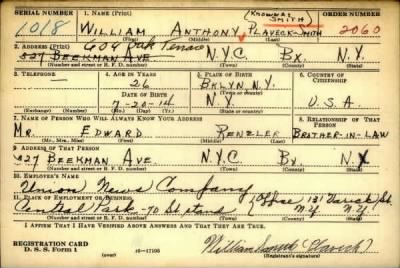 SERIAL NUMBER 1. NAME (Print) (KNOWN AS SMITH) ORDER NUMBER
1018 WILLIAM ANTHONY PLAVECK-SMITH 2060
(First) (Middle) (Last)
2. ADDRESS (Print) 604 Oak Terrace
327 BEEKMAN AVE N.Y.C. BX. N.Y.
(Number and street or R. F. D. number) (Town) (County) (State)
3. TELEPHONE 4. AGE IN YEARS 5. PLACE OF BIRTH 6. COUNTRY OF CITIZENSHIP
26 BKLYN. N.Y.
DATE OF BIRTH (Town or county)
7-20-14 N.Y. U.S.A.
(Exchange) (Number) (Mo.) (Day) (Yr.) (State or country)
7. NAME OF PERSON WHO WILL ALWAYS KNOW YOUR ADDRESS 8. RELATIONSHIP OF THAT PERSON
MR. EDWARD RENZLER BROTHER-IN-LAW
(Mr., Mrs., Miss) (First) (Middle) (Last)
9. ADDRESS OF THAT PERSON
327 BEEKMAN AVE. N.Y.C BX. N.Y.
(Number and street or R. F. D. number) (Town) (County) (State)
10. EMPLOYER'S NAME
Union News Company
11. PLACE OF EMPLOYMENT OR BUSINESS (Office 131 Varick St.
Central Park - 70 St stand N.Y. N.Y.
(Number and street or R. F. D. number) (Town) (County) (State)
I AFFIRM THAT I HAVE VERIFIED ABOVE ANSWERS AND THAT THEY ARE TRUE.
REGISTRATION CARD
D. S. S. Form 1 (over) William Smith (Plaveck)
(Registrant's signature)